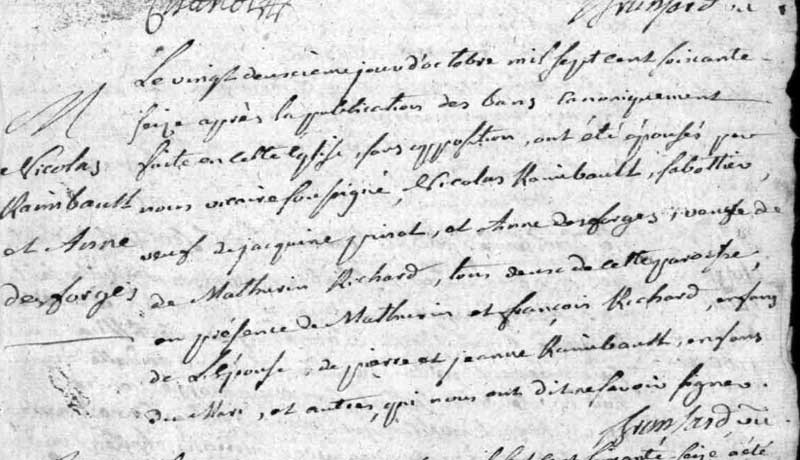 M
Nicolas
Raimbault
et Anne
desforges
Le vingt deuxième jour d'octobre mil sept cent soixante
seize après la publication des bans canoniquement
faite en cette Eglise, sans opposition, ont été épousés par
nous vicaire soussigné, Nicolas Raimbault, sabottier,
veuf de jacquine pinot, et Anne desforges, veufe de
de Mathurin Richard, tous deux de cette paroisse,
en présence de Mathurin et françois Richard, enfans
de L'épouse, de pierre et jeanne Raimbault, enfans
du Mari, et autres, qui nous ont dit ne savoir signer.